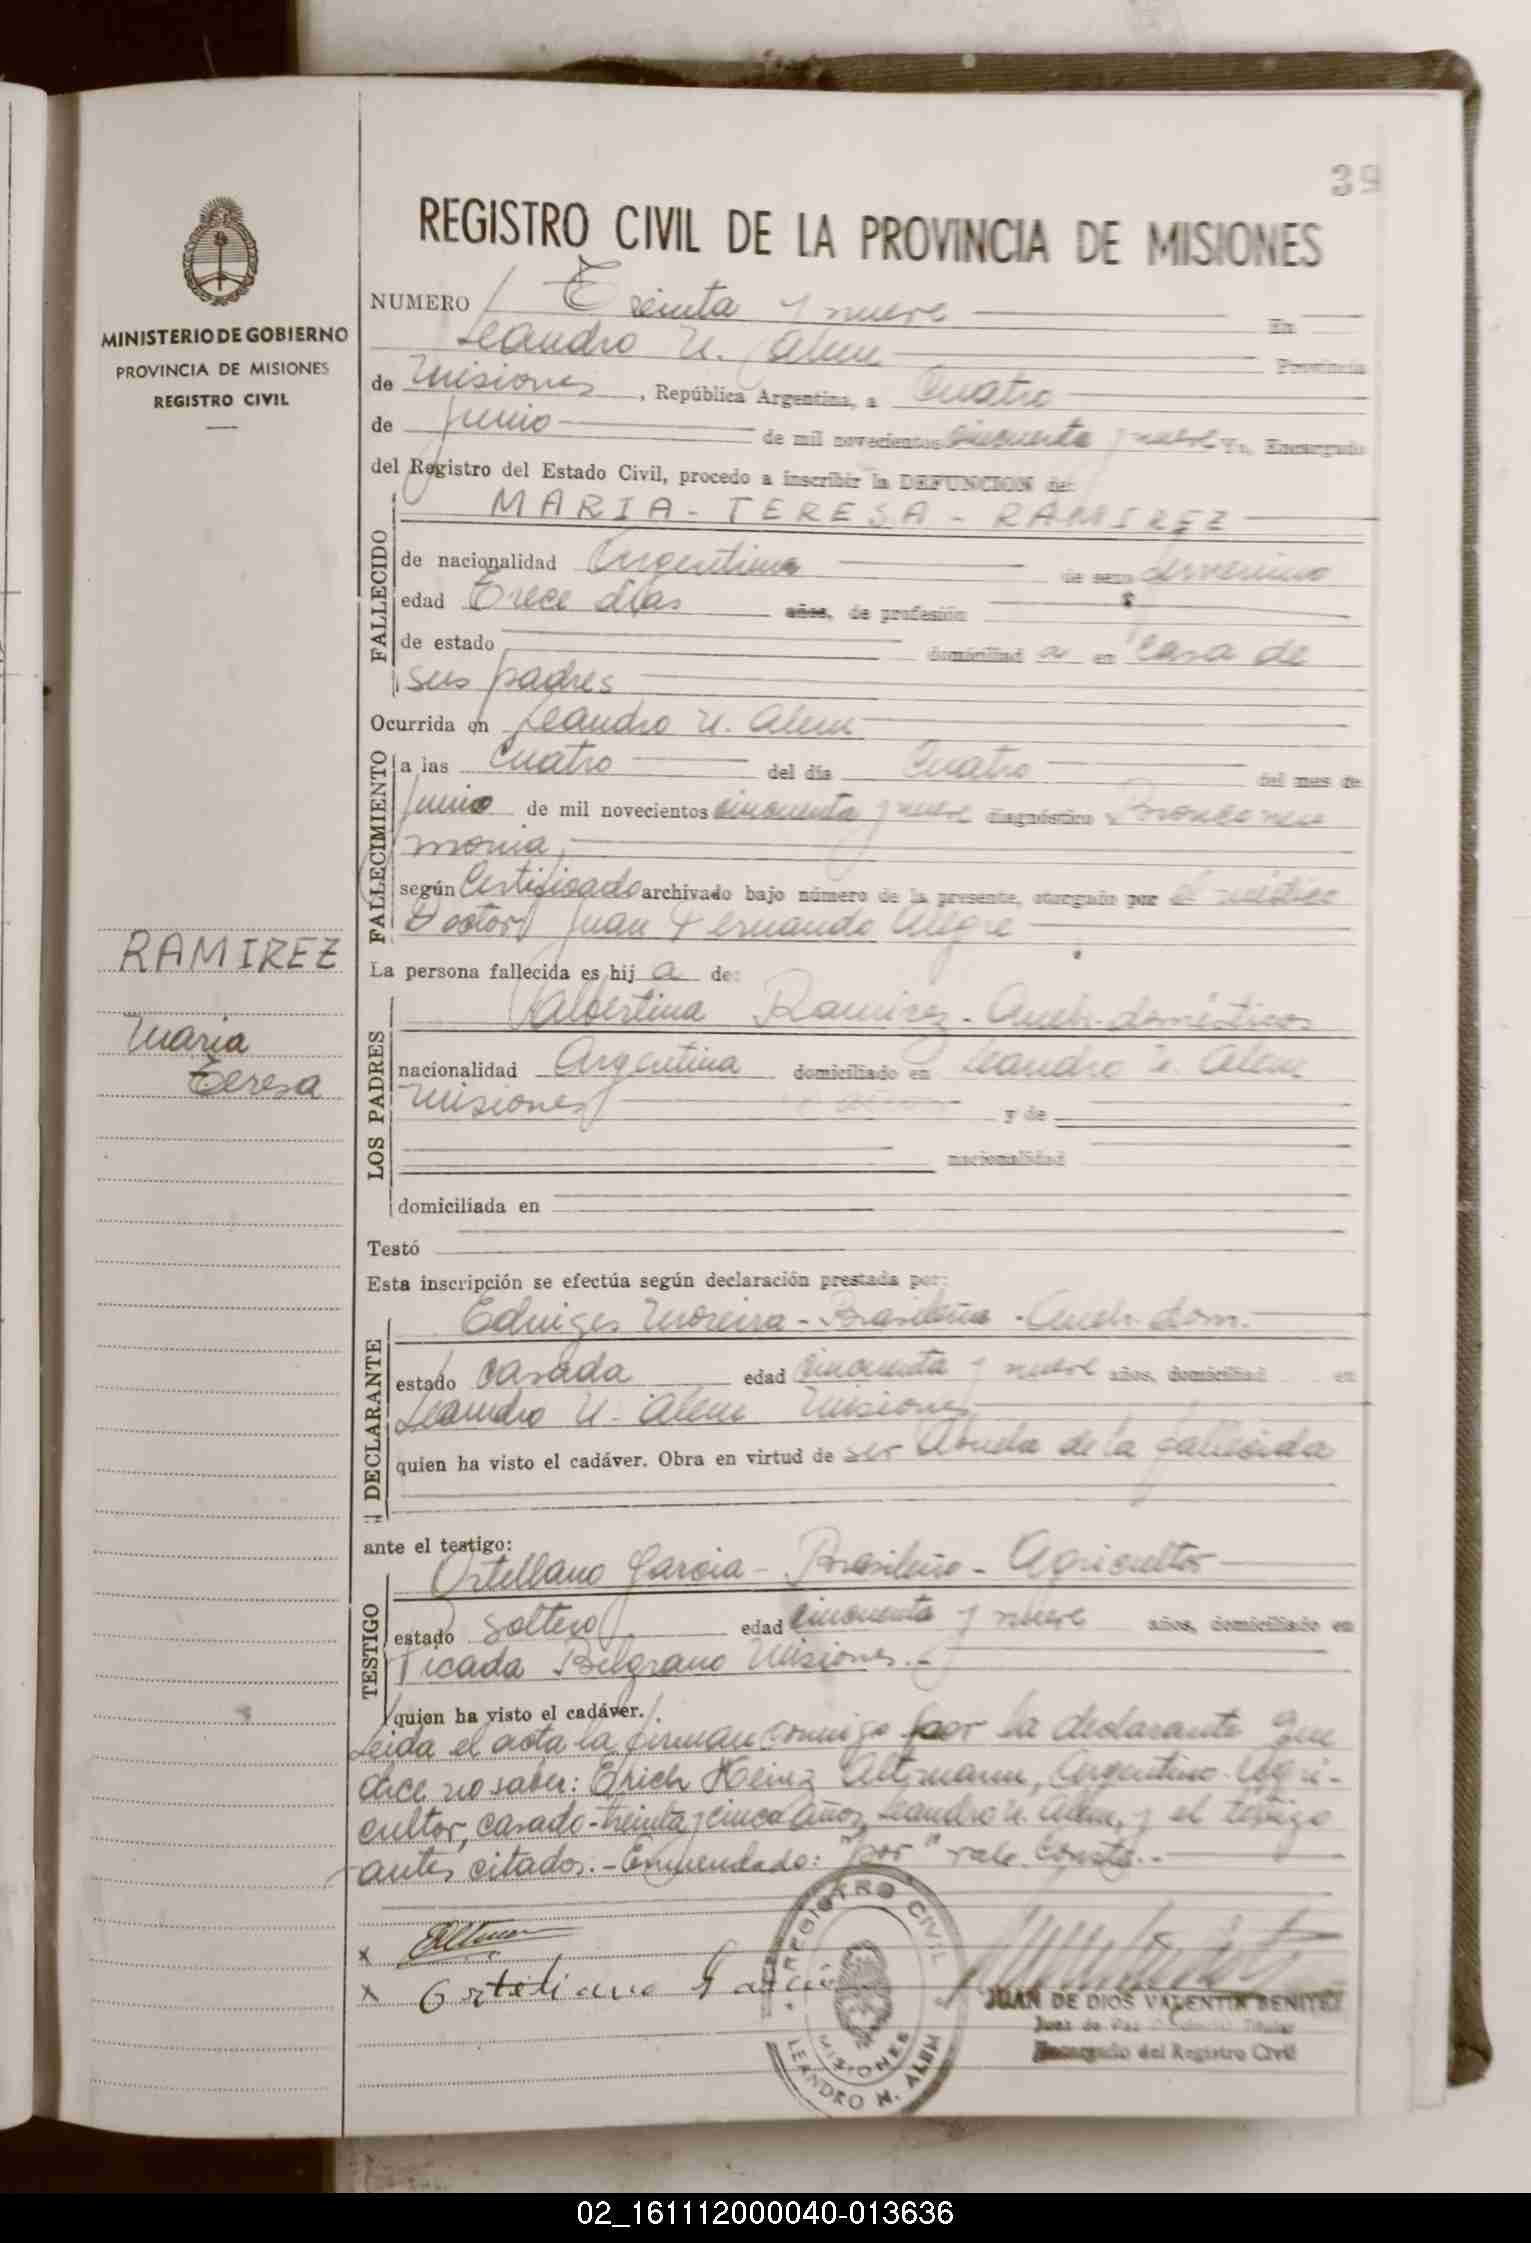 39
REGISTRO CIVIL DE LA PROVINCIA DE MISIONES
MINISTERIO DE GOBIERNO
PROVINCIA DE MISIONES
REGISTRO CIVIL
RAMIREZ
Maria
Teresa
NUMERO Treinta y nueve En
Leandro N. Alem Provincia
de Misiones, República Argentina, a Cuatro
de junio de mil novecientos cincuenta y nueve Yo, Encargado
del Registro del Estado Civil, procedo a inscribir la DEFUNCION de:
FALLECIDO
MARIA - TERESA - RAMIREZ
de nacionalidad Argentina de sexo femenino
edad Trece días años, de profesión
de estado domiciliad a en casa de
sus padres
Ocurrida en Leandro N. Alem
FALLECIMIENTO
a las cuatro del día Cuatro del mes de
junio de mil novecientos cincuenta y nueve diagnóstico Bronconeu
monia,
según Certificado archivado bajo número de la presente, otorgado por el médico
Doctor Juan Fernando Alegre
La persona fallecida es hij a de:
LOS PADRES
Albertina Ramirez - Queh. domésticos
nacionalidad Argentina domiciliado en Leandro N. Alem
Misiones y de
nacionalidad
domiciliada en
Testó
Esta inscripción se efectúa según declaración prestada por:
DECLARANTE
Eduiges Moreira - Brasileña - Queh. dom.
estado casada edad cincuenta y nueve años, domiciliad en
Leandro N. Alem Misiones
quien ha visto el cadáver. Obra en virtud de ser Abuela de la fallecida
ante el testigo:
TESTIGO
Ortellano Garcia - Brasileño - Agricultor
estado soltero edad cincuenta y nueve años, domiciliado en
Picada Belgrano Misiones.-
quien ha visto el cadáver.
Leida el acta la firman conmigo por la declarante que
dice no saber: Erich Heinz Altmann, Argentino - Agri-
cultor, casado - treinta y cinco años, Leandro N. Alem, y el testigo
antes citados. - Enmendado: "por" vale. Conste.-
x
x Orteliano Garcia
REGISTRO CIVIL
MISIONES
LEANDRO N. ALEM
JUAN DE DIOS VALENTIN BENITEZ
Juez de Paz Titular
Encargado del Registro Civil
02_161112000040-013636